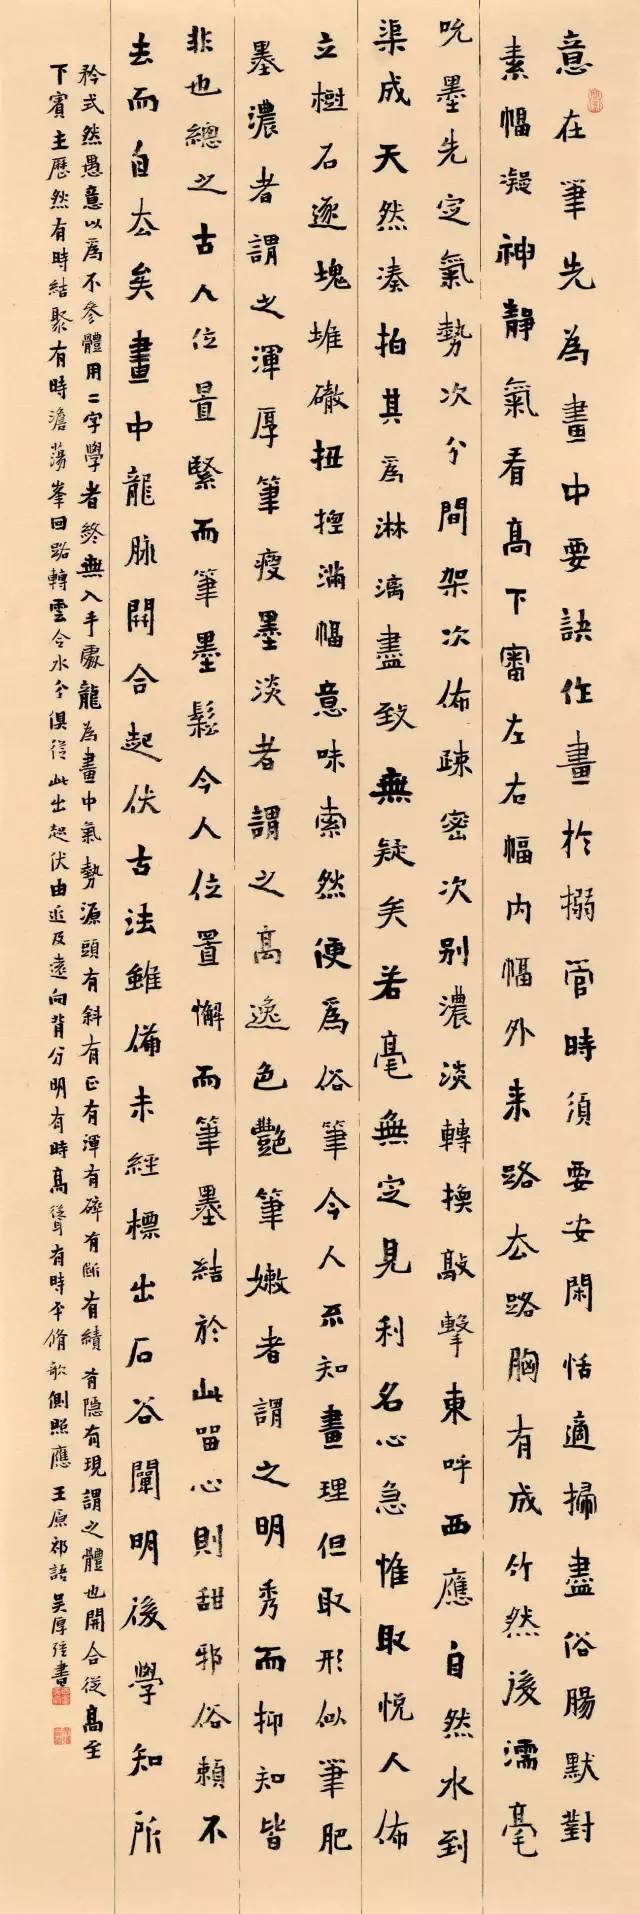 意在筆先為畫中要訣作畫於搦管時須要安閑恬適掃盡俗腸默對
素幅凝神靜氣看高下審左右幅内幅外来路去路胸有成竹然後濡毫
吮墨先定氣勢次分間架次佈疎密次别濃淡轉換敲擊東呼西應自然水到
渠成天然湊拍其為淋漓盡致無疑矣若毫無定見利名心急惟取悅人佈
立樹石逐塊堆扭捏滿幅意味索然便為俗筆今人不知畫理但取形似筆肥
墨濃者謂之渾厚筆瘦墨淡者謂之高逸色艷筆嫩者謂之明秀而抑知皆
非也總之古人位置緊而筆墨鬆今人位置懈而筆墨結於此留心則甜邪俗賴不
去而自去矣畫中龍脉開合起伏古法雖備未經標出石谷闡明後學知所
矜式然愚意以為不參體用二字學者終無入手處龍為畫中氣勢源頭有斜有正有渾有碎有斷有續有隱有現謂之體也開合從高至
下賓主歷然有時結聚有時澹蕩峯回路轉雲合水分俱從此出起伏由近及遠向背分明有時高聳有時平脩欹側照應 王原祁語 吴厚書